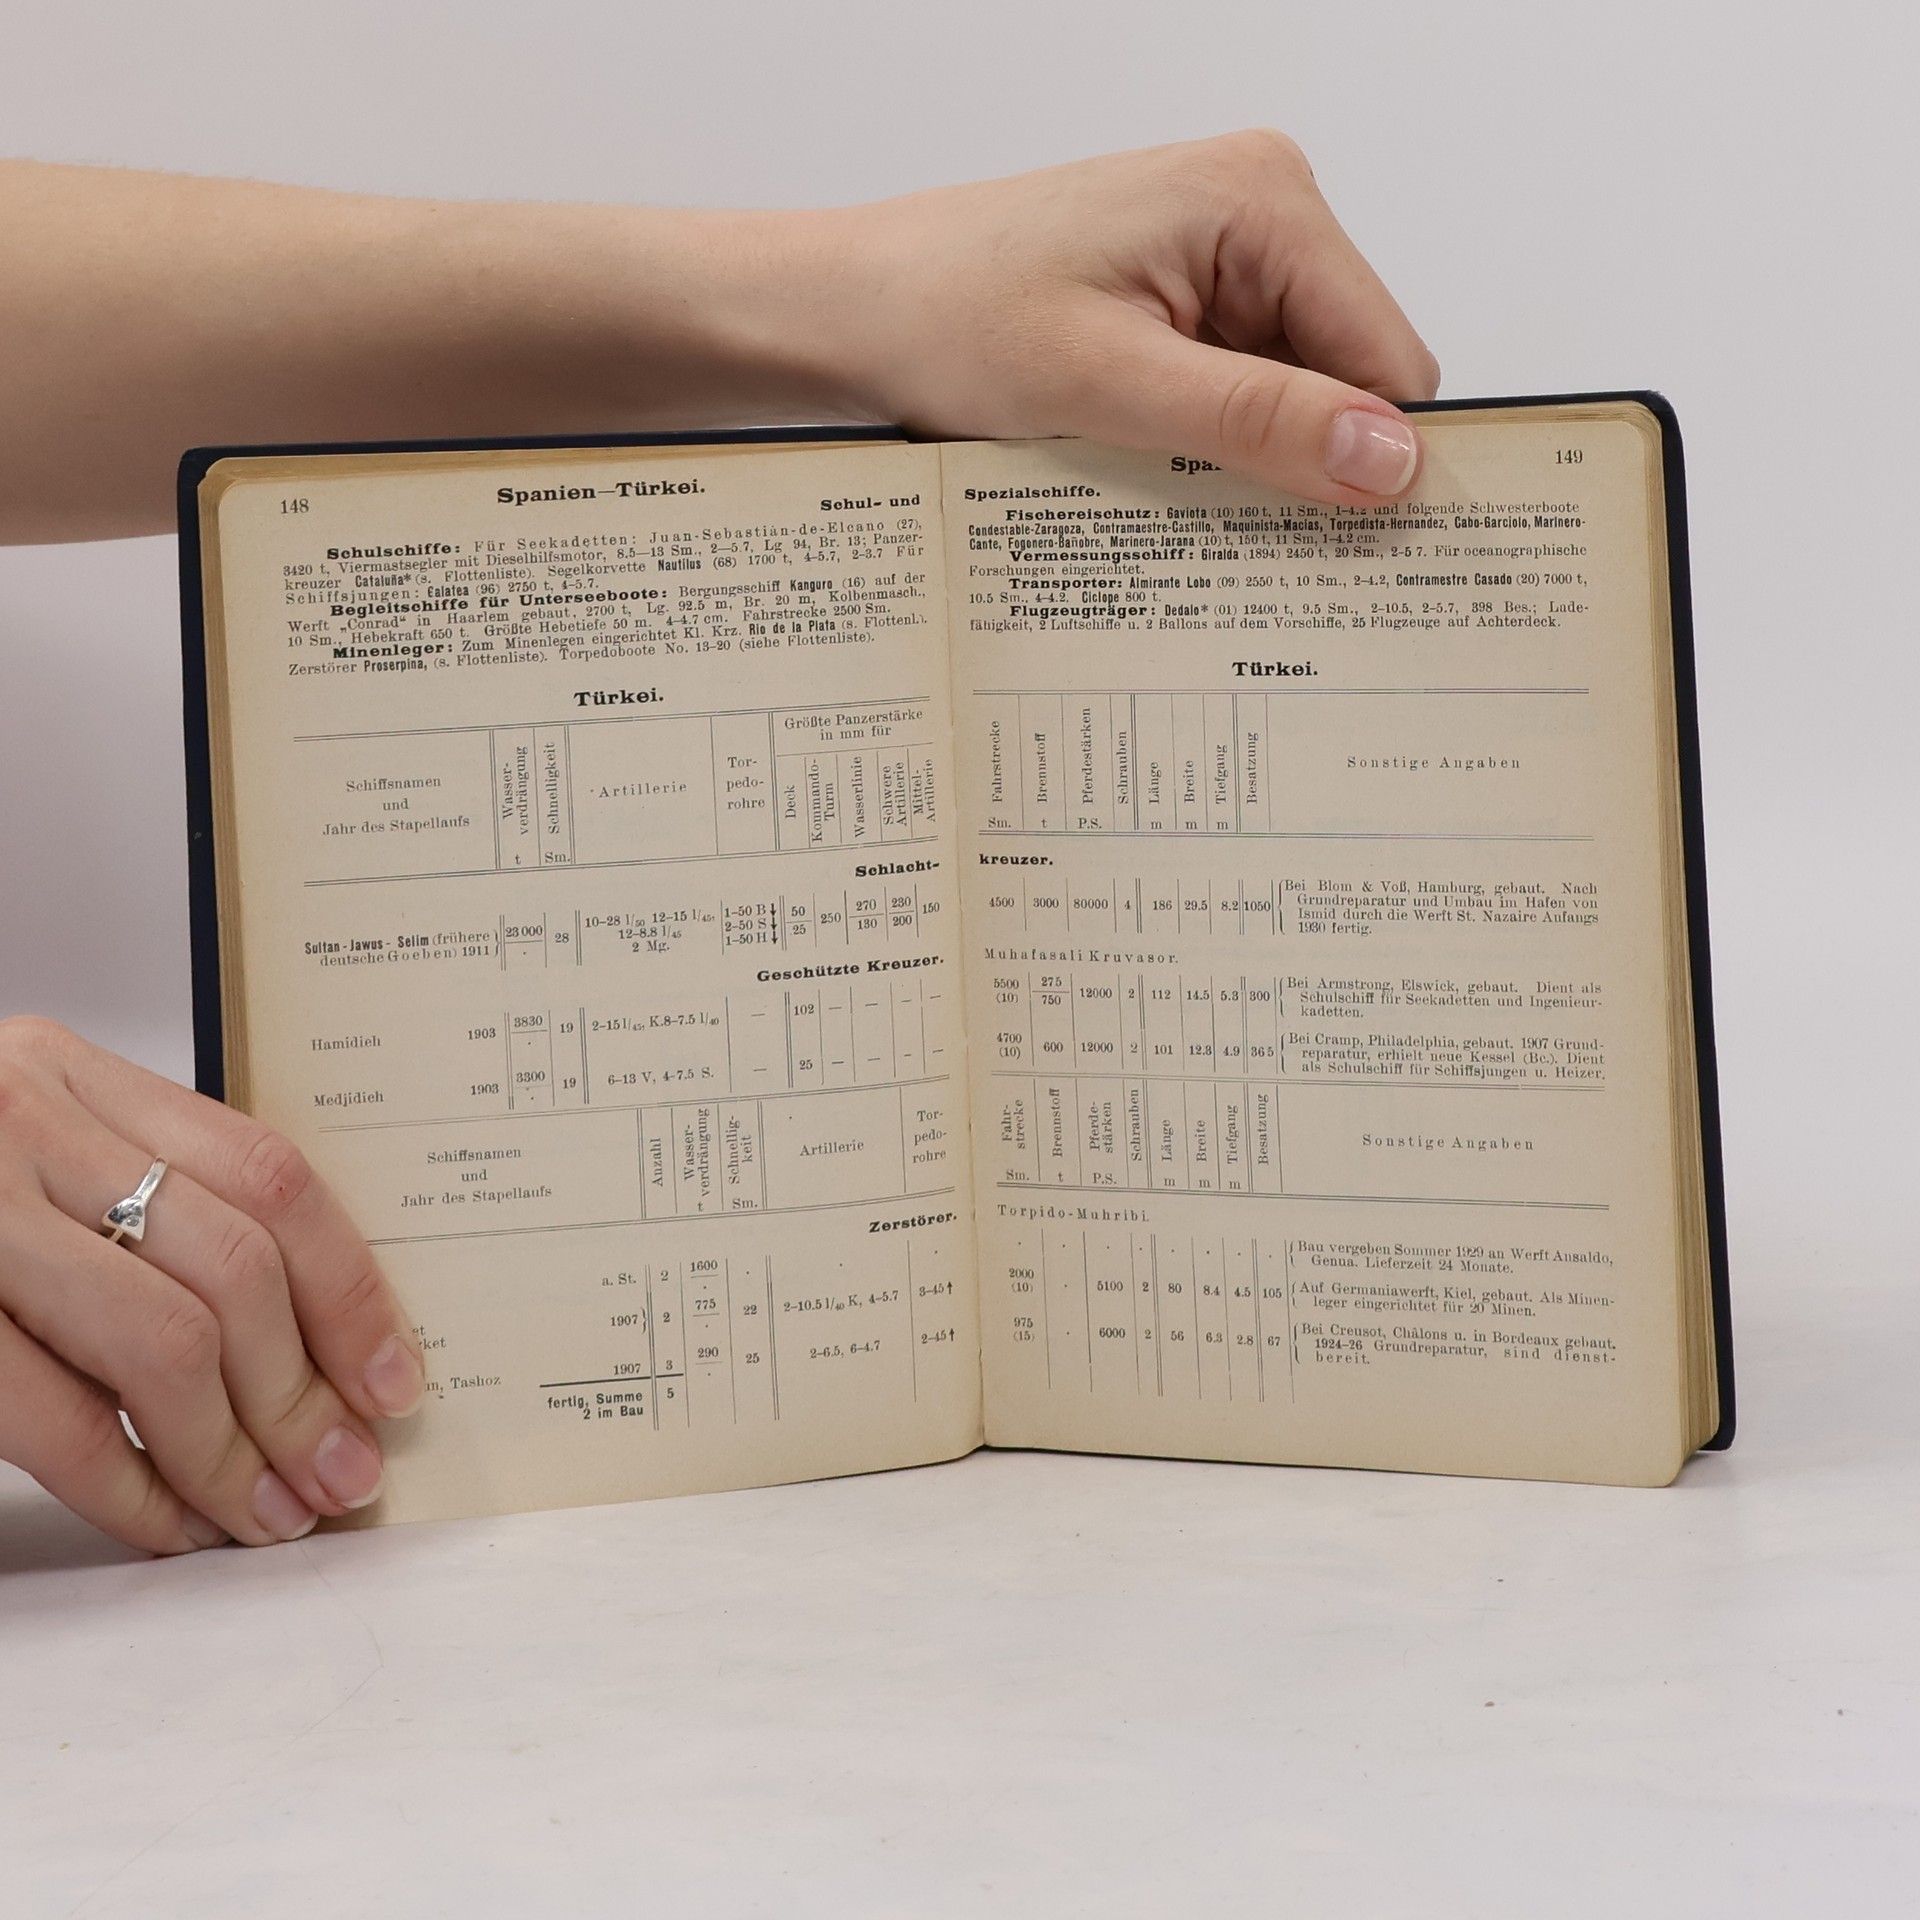 148
Spanien—Türkei.
Schul- und
Schulschiffe: Für Seekadetten: Juan-Sebastián-de-Elcano (27),
3420 t, Viermastsegler mit Dieselhilfsmotor, 8.5—13 Sm., 2—5.7, Lg 94, Br. 13; Panzer-
kreuzer Cataluña* (s. Flottenliste). Segelkorvette Nautilus (68) 1700 t, 4–5.7, 2–3.7 Für
Schiffsjungen: Galatea (96) 2750 t, 4–5.7.
Begleitschiffe für Unterseeboote: Bergungsschiff Kanguro (16) auf der
Werft „Conrad“ in Haarlem gebaut, 2700 t, Lg. 92.5 m, Br. 20 m, Kolbenmasch.,
10 Sm., Hebekraft 650 t. Größte Hebetiefe 50 m. 4–4.7 cm. Fahrstrecke 2500 Sm.
Minenleger: Zum Minenlegen eingerichtet Kl. Krz. Rio de la Plata (s. Flottenl.).
Zerstörer Proserpina, (s. Flottenliste). Torpedoboote No. 13–20 (siehe Flottenliste).
Türkei.
Schiffsnamen
und
Jahr des Stapellaufs
Wasser-
verdrängung
t
Schnelligkeit
Sm.
Artillerie
Tor-
pedo-
rohre
Größte Panzerstärke
in mm für
Deck
Kommando-
Turm
Wasserlinie
Schwere
Artillerie
Mittel-
Artillerie
Schlacht-
Sultan-Jawus-Selim (frühere
deutsche Goeben) 1911
23 000
28
10–28 l/50 12–15 l/45,
12–8.8 l/45
2 Mg.
1–50 B↓
2–50 S↓
1–50 H↓
50
25
250
270
130
230
200
150
Geschützte Kreuzer.
Hamidieh 1903 3830 19 2–15 l/45, K.8–7.5 l/40 — 102 — — — —
Medjidieh 1903 3300 19 6–13 V, 4–7.5 S. — 25 — — — —
Schiffsnamen
und
Jahr des Stapellaufs
Anzahl
Wasser-
verdrängung
t
Schnellig-
keit
Sm.
Artillerie
Tor-
pedo-
rohre
Zerstörer.
a. St. 2 1600
1907 2 775 22 2–10.5 l/40 K, 4–5.7 3–45↑
et
ket
1907 3 290 25 2–6.5, 6–4.7 2–45↑
Tashoz
fertig, Summe 5
2 im Bau
149
Spa
Spezialschiffe.
Fischereischutz: Gaviota (10) 160 t, 11 Sm., 1–4.2 und folgende Schwesterboote
Condestable-Zaragoza, Contramaestre-Castillo, Maquinista-Macias, Torpedista-Hernandez, Cabo-Garciolo, Marinero-
Cante, Fogonero-Bañobre, Marinero-Jarana (10) t, 150 t, 11 Sm, 1–4.2 cm.
Vermessungsschiff: Giralda (1894) 2450 t, 20 Sm., 2–5 7. Für oceanographische
Forschungen eingerichtet.
Transporter: Almirante Lobo (09) 2550 t, 10 Sm., 2–4.2, Contramestre Casado (20) 7000 t,
10.5 Sm., 4–4.2. Ciclope 800 t.
Flugzeugträger: Dedalo* (01) 12400 t, 9.5 Sm., 2–10.5, 2–5.7, 398 Bes.; Lade-
fähigkeit, 2 Luftschiffe u. 2 Ballons auf dem Vorschiffe, 25 Flugzeuge auf Achterdeck.
Türkei.
Fahrstrecke
Sm.
Brennstoff
t
Pferdestärken
P.S.
Schrauben
Länge
m
Breite
m
Tiefgang
m
Besatzung
Sonstige Angaben
kreuzer.
4500 3000 80000 4 186 29.5 8.2 1050
Bei Blom & Voß, Hamburg, gebaut. Nach
Grundreparatur und Umbau im Hafen von
Ismid durch die Werft St. Nazaire Anfangs
1930 fertig.
Muhafasali Kruvasor.
5500
(10)
275
750
12000 2 112 14.5 5.3 300
Bei Armstrong, Elswick, gebaut. Dient als
Schulschiff für Seekadetten und Ingenieur-
kadetten.
4700
(10)
600 12000 2 101 12.8 4.9 365
Bei Cramp, Philadelphia, gebaut. 1907 Grund-
reparatur, erhielt neue Kessel (Bc.). Dient
als Schulschiff für Schiffsjungen u. Heizer.
Fahr-
strecke
Sm.
Brennstoff
t
Pferde-
stärken
P.S.
Schrauben
Länge
m
Breite
m
Tiefgang
m
Besatzung
Sonstige Angaben
Torpido-Muhribi.
Bau vergeben Sommer 1929 an Werft Ansaldo,
Genua. Lieferzeit 24 Monate.
2000
(10)
5100 2 80 8.4 4.5 105
Auf Germaniawerft, Kiel, gebaut. Als Minen-
leger eingerichtet für 20 Minen.
975
(15)
6000 2 56 6.3 2.8 67
Bei Creusot, Châlons u. in Bordeaux gebaut.
1924–26 Grundreparatur, sind dienst-
bereit.